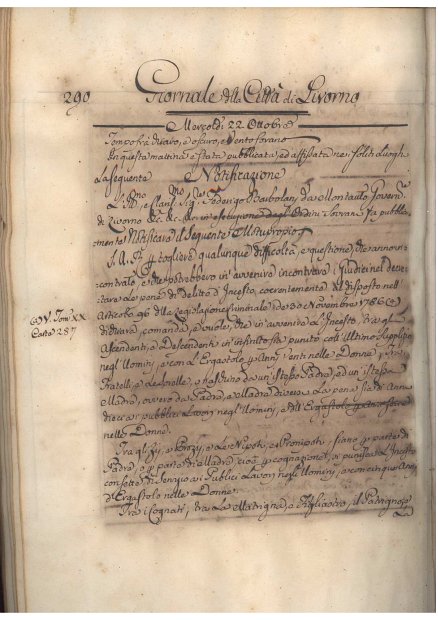 290 Giornale della Città di Livorno
Mercoldì 22 Ottobre
Tempo frà chiaro, e oscuro, e Vento sovrano
In questa mattina è stata pubblicata, ed affissata nei soliti Luoghi
La seguente Notificazione
L'Ill.mo e Clariss.mo Sig.re Federigo Barbolani da Montauto Govern.re
di Livorno &c. &c. &c. in esecuzione degli Ordini Sovrani fa pubblica-
mente Notificare il Seguente Motuproprio
S. A. R. p togliere qualunque difficoltà, e questione, che hanno in-
contrato, e che potrebbero in avvenire incontrare i Giudici nel decre-
tare le pene di delitto d'Incesto, coerentemente al disposto nell'
Articolo 96 della Legislazione Criminale de 30 Novembre 1786 (a)
dichiara, comanda, e vuole, che in avvenire l'Incesto, tra gl'
Ascendenti, e Descendenti in infinito sia punito coll'ultimo Supplizio
negl'Uomini, e con l'Ergastolo p Anni Venti nelle Donne; fra i
Fratelli, e Sorelle, o nascano da un'istesso Padre, ed un'istessa
Madre, ovvero da Padre, o Madre diversa La pena sia di Anni
dieci ai pubblici Lavori negl'Uomini, e dell'Ergastolo
nelle Donne.
Tra gli Zij, o Prozij, e Le Nipoti, e Pronipoti, siano p parte di
Padre, o p parte di Madre, cioè p cognazione, si punisca l'Incesto
con sette di Servizio ai Publici Lavori negl'Uomini, e con cinque Anni
d'Ergastolo nelle Donne.
Tra i Cognati, tra La Matrigna, e Figliastro, il Patrigno, e
La
(a) V. Tom. XX
Carte 287